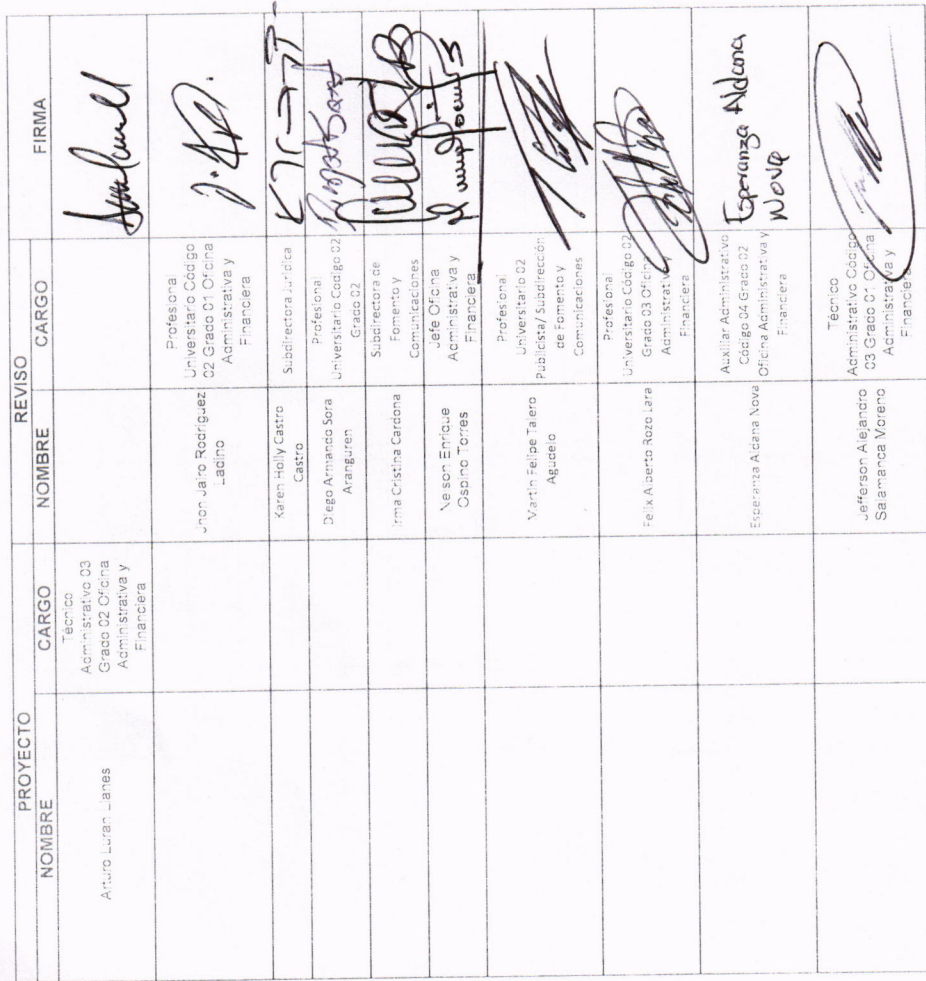 PROYECTO
REVISO
NOMBRE
CARGO
NOMBRE
CARGO
FIRMA
Arturo Luran Llanes
Técnico
Administrativo 03
Grado 02 Oficina
Administrativa y
Financiera
Jhon Jairo Rodríguez
Ladino
Profesional
Universitario Código
02 Grado 01 Oficina
Administrativa y
Financiera
Karen Holly Castro
Castro
Subdirectora Jurídica
Diego Armando Sora
Aranguren
Profesional
Universitario Código 02
Grado 02
Irma Cristina Cardona
Subdirectora de
Fomento y
Comunicaciones
Nelson Enrique
Ospino Torres
Jefe Oficina
Administrativa y
Financiera
Martin Felipe Talero
Agudelo
Profesional
Universitario 02
Publicista/ Subdirección
de Fomento y
Comunicaciones
Felix Alberto Rozo Lara
Profesional
Universitario Código 02
Grado 03 Oficina
Administrativa y
Financiera
Esperanza Aldana Nova
Auxiliar Administrativo
Código 04 Grado 02
Oficina Administrativa y
Financiera
Esperanza Aldana
Nova
Jefferson Alejandro
Salamanca Moreno
Técnico
Administrativo Código
03 Grado 01 Oficina
Administrativa y
Financiera